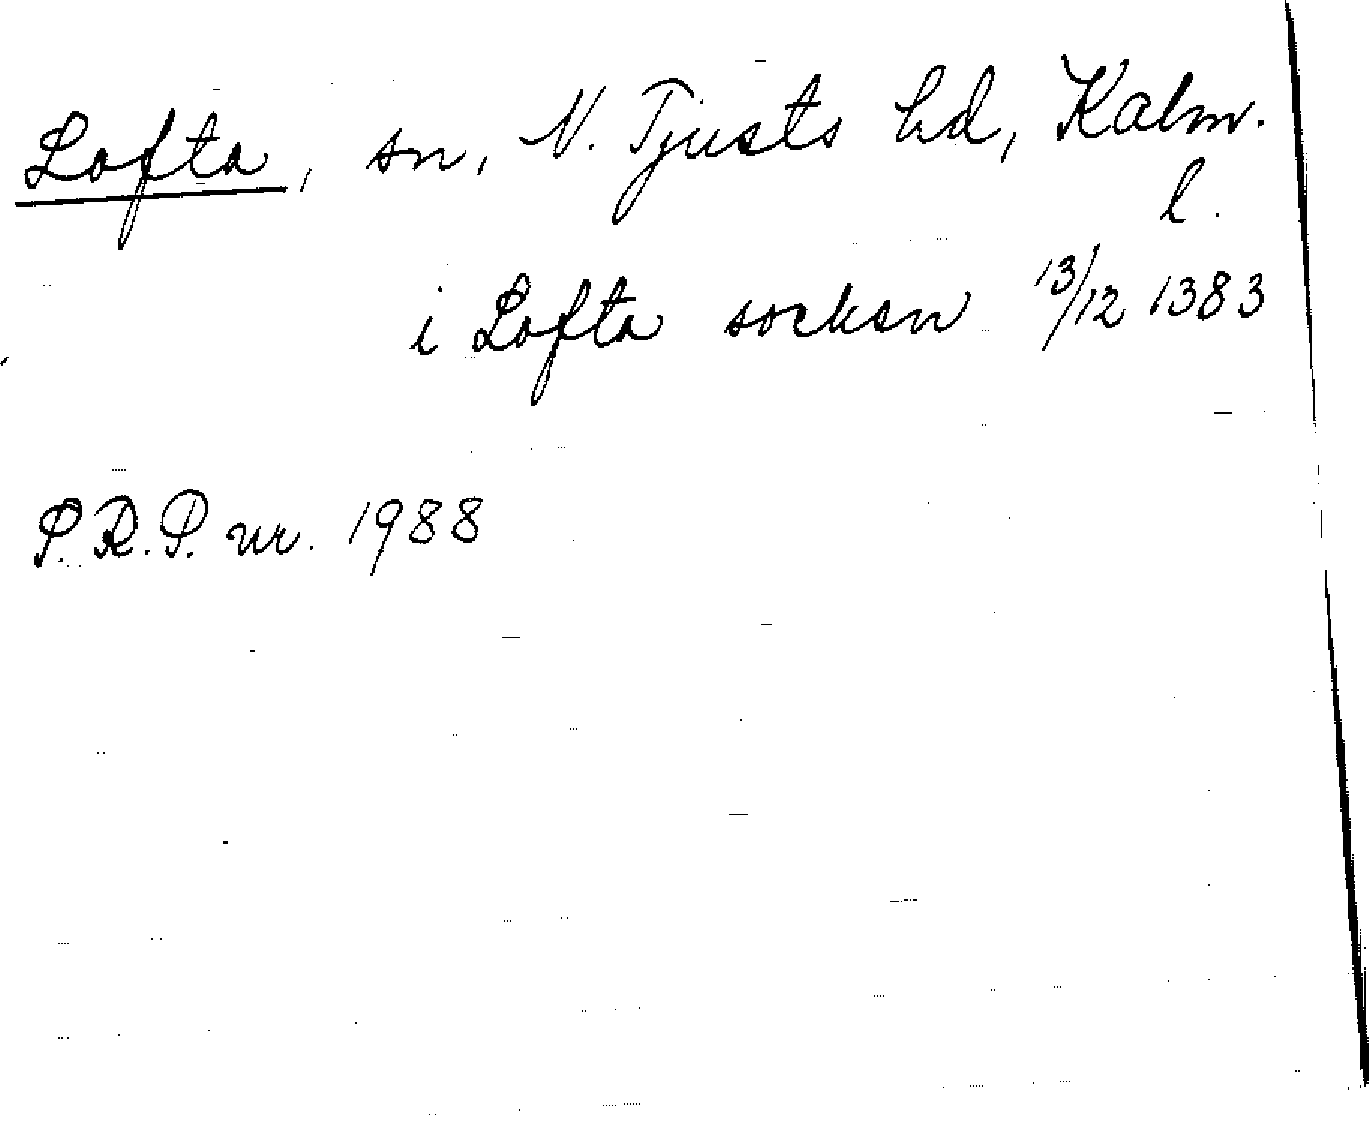 Lofta, sn, N. Tjusts hd, Kalm.
l.
i Lofta socken 13/12 1383
P.R.P. nr. 1988